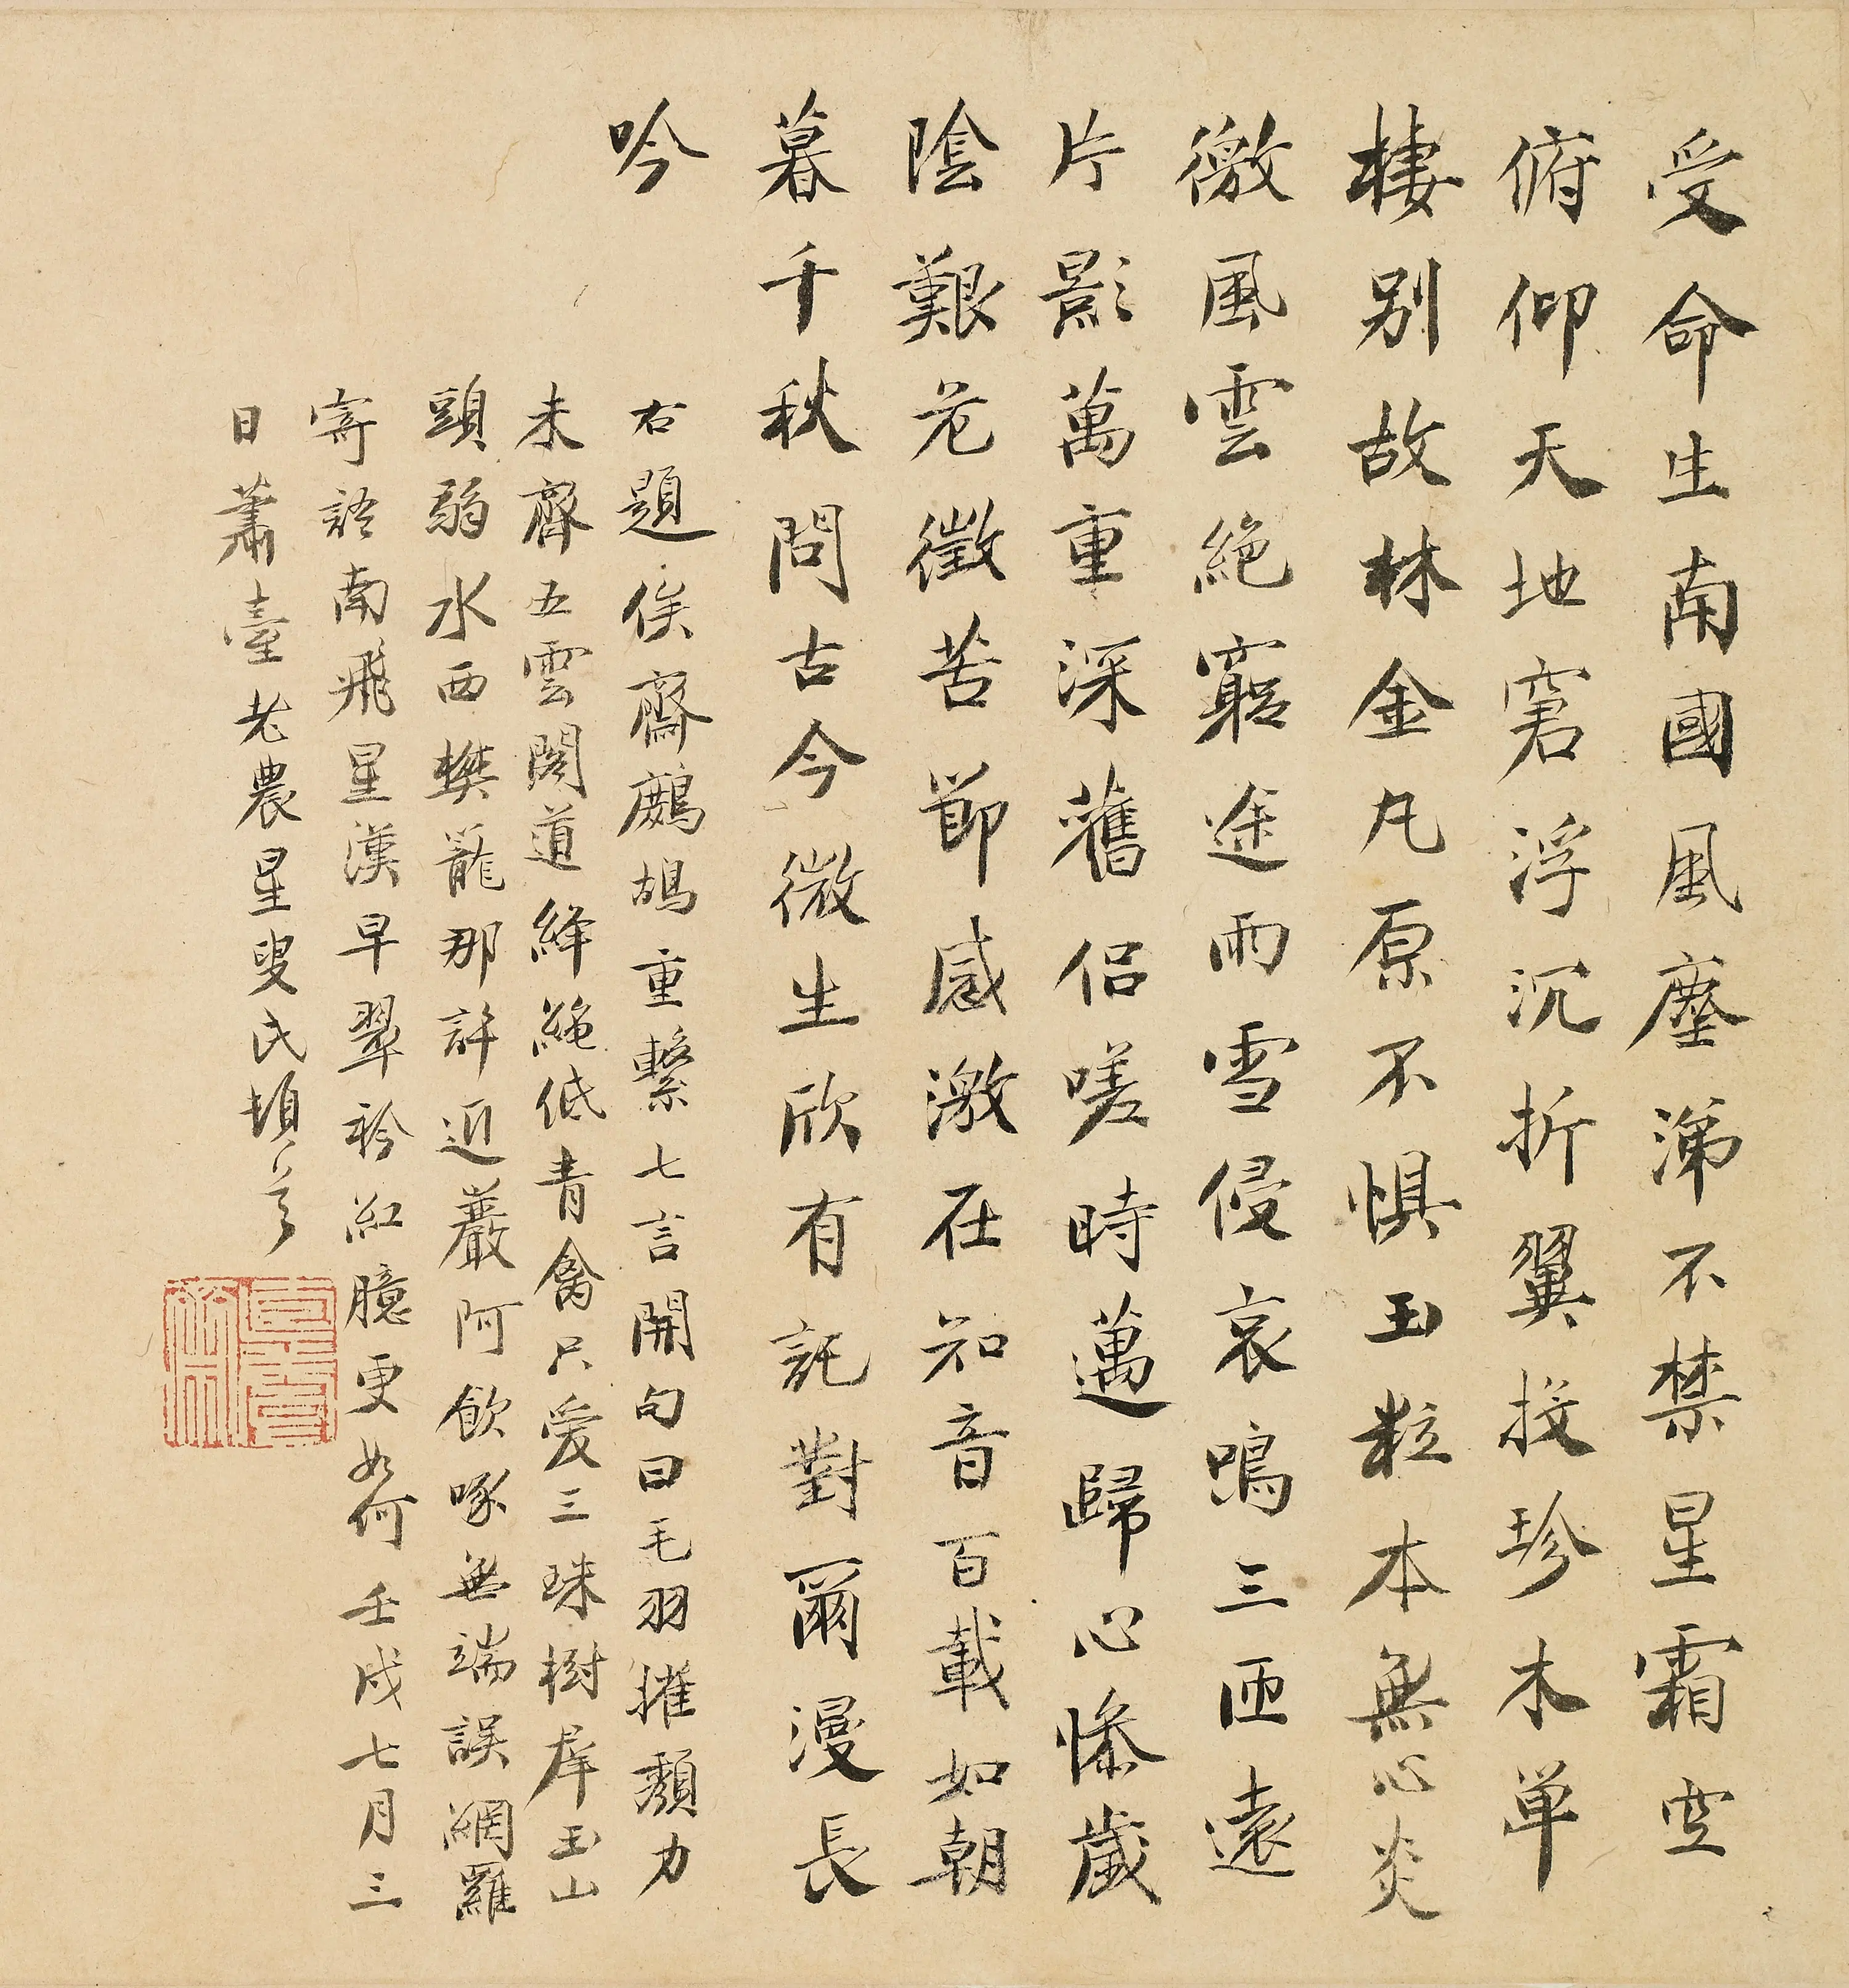 受命生南國風塵涕不禁星霜空
俯仰天地窘浮沉折翼投珍木單
棲別故林金凡原不惧玉粒本無心炎
徼風雲絶窮途雨雪侵哀鳴三匝遠
片影萬重深舊侣嗟時邁歸心悕歲
陰艱危徵苦節感激在知音百載如朝
暮千秋問古今微生欣有託對爾漫長
吟
右題俟齋鷓鴣重繫七言開句曰毛羽摧頽力
未齊五雲閣道絳繩低青禽只愛三珠樹岸玉山
頭弱水西樊籠那許近巖阿飲啄無端誤網羅
寄語南飛星漢早翠衿紅臆更如何壬戌七月三
日蕭臺老農星叟氏塤